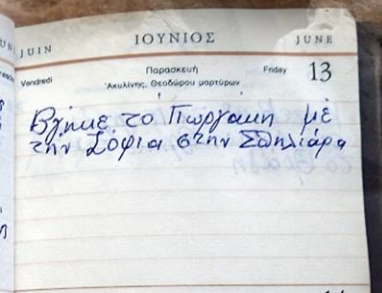 JUIN ΙΟΥΝΙΟΣ JUNE
Vendredi Παρασκευή Friday 13
Ἀκυλίνης, Θεοδώρου μαρτύρων
Βγήκε το Γιωργακη μέ
την Σοφια στην Σπηλιάρα